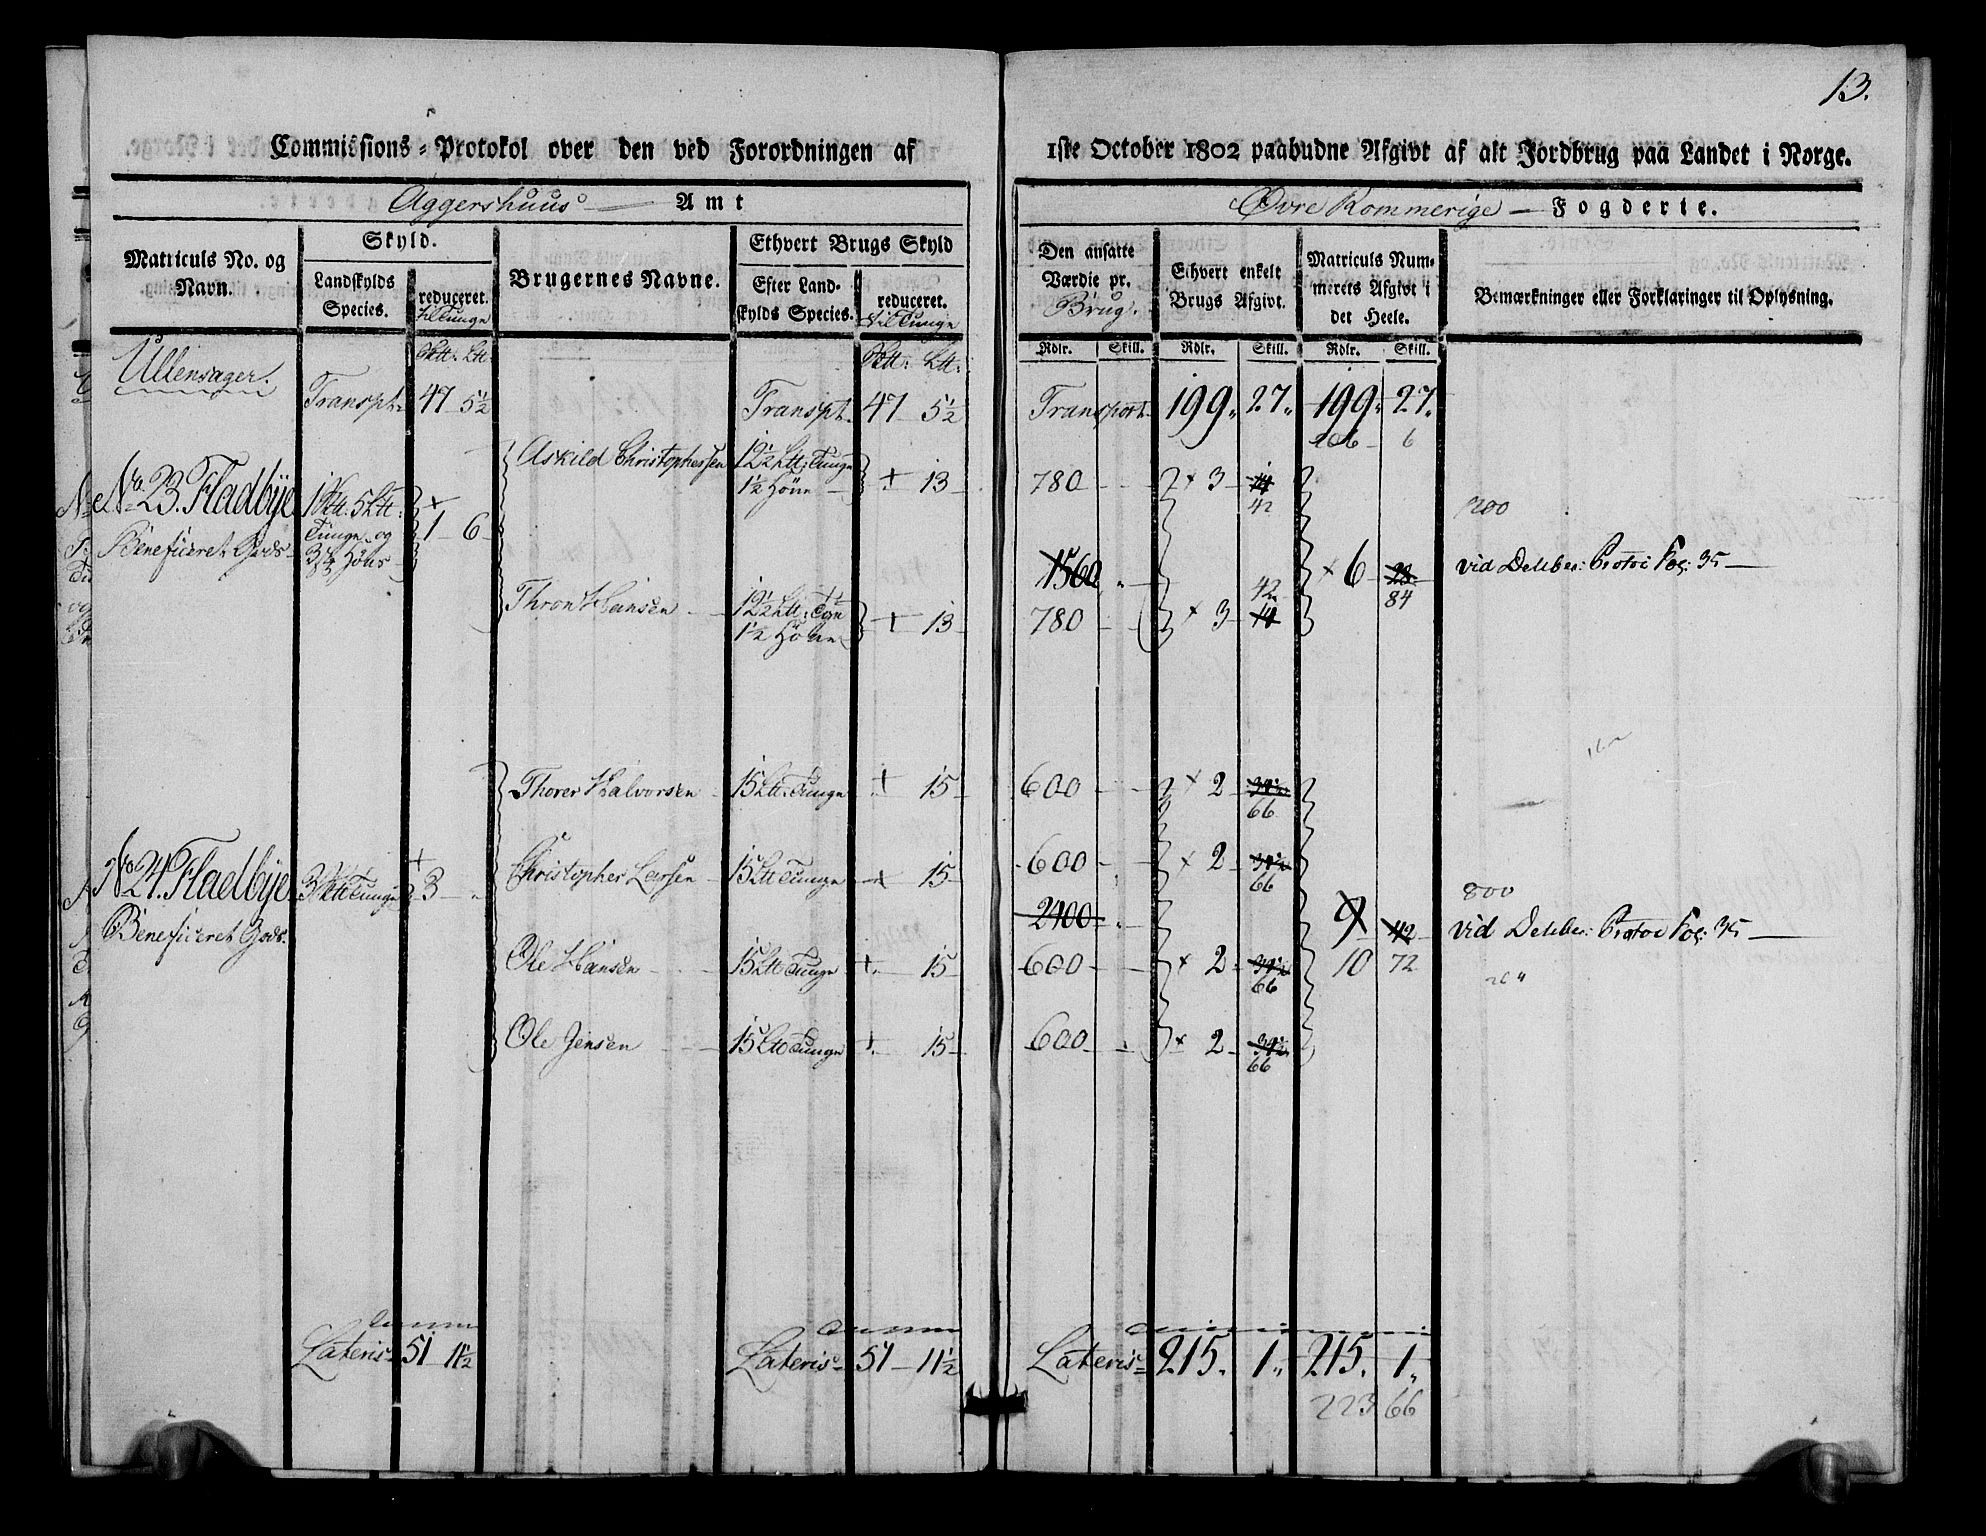 13.
Commissions-Protokol over den ved Forordningen af 1ste October 1802 paabudne Afgivt af alt Jordbrug paa Landet i Norge.
Aggershuus Amt
Øvre Rommerige Fogderie.
Matriculs No. og Navn.
Skyld.
Landskylds Species.
reduceret. til Tunge
Brugernes Navne.
Ethvert Brugs Skyld
Efter Landskylds Species.
reduceret. til Tunge
Den ansatte Værdie pr. Brug.
Ethvert enkelt Brugs Afgivt.
Matriculs Nummerets Afgivt i det Heele.
Bemærkninger eller Forklaringer til Oplysning.
Rdlr. Skill. Rdlr. Skill. Rdlr. Skill.
Ullensager.
Transpt. 47 5½ Transpt. 47 5½ Transport 199 27 199 27
206 6
Askild Christophersen 12½ Ltt: Tunge 1½ Höne + 13 780 × 3 14 42
No 23. Fladbÿe 1 Sktt: 5 Ltt: Tunge og 3 Höns + 1 6
Beneficeret Gods
200
1560 × 6 28 84 vid Deliber: Protoc Fol: 35
Thron Hansen 12½ Ltt: Tge 1½ Höne + 13 780 × 3 42 14
Thorer Halvorsen 15 Ltt: Tunge + 15 600 × 2 34½ 66
No 24. Fladbÿe 3 Sktt Tunge + 3
Beneficeret Gods.
Christopher Larsen 15 Ltt Tunge + 15 600 × 2 34½ 66
800
2400 9 42 vid Deliber: Protoc Fol: 35
Ole Hansen 15 Ltt Tunge + 15 600 × 2 34½ 66 10 72
Ole Jensen 15 Ltt Tunge + 15 600 × 2 34½ 66
Lateris 51 11½ Lateris 51 11½ Lateris 215. 1 215. 1
223 66